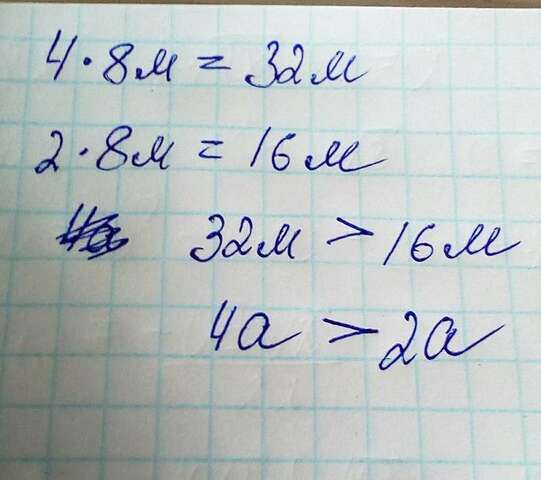 4·8м = 32м
2·8м = 16м
32м > 16м
4а > 2а